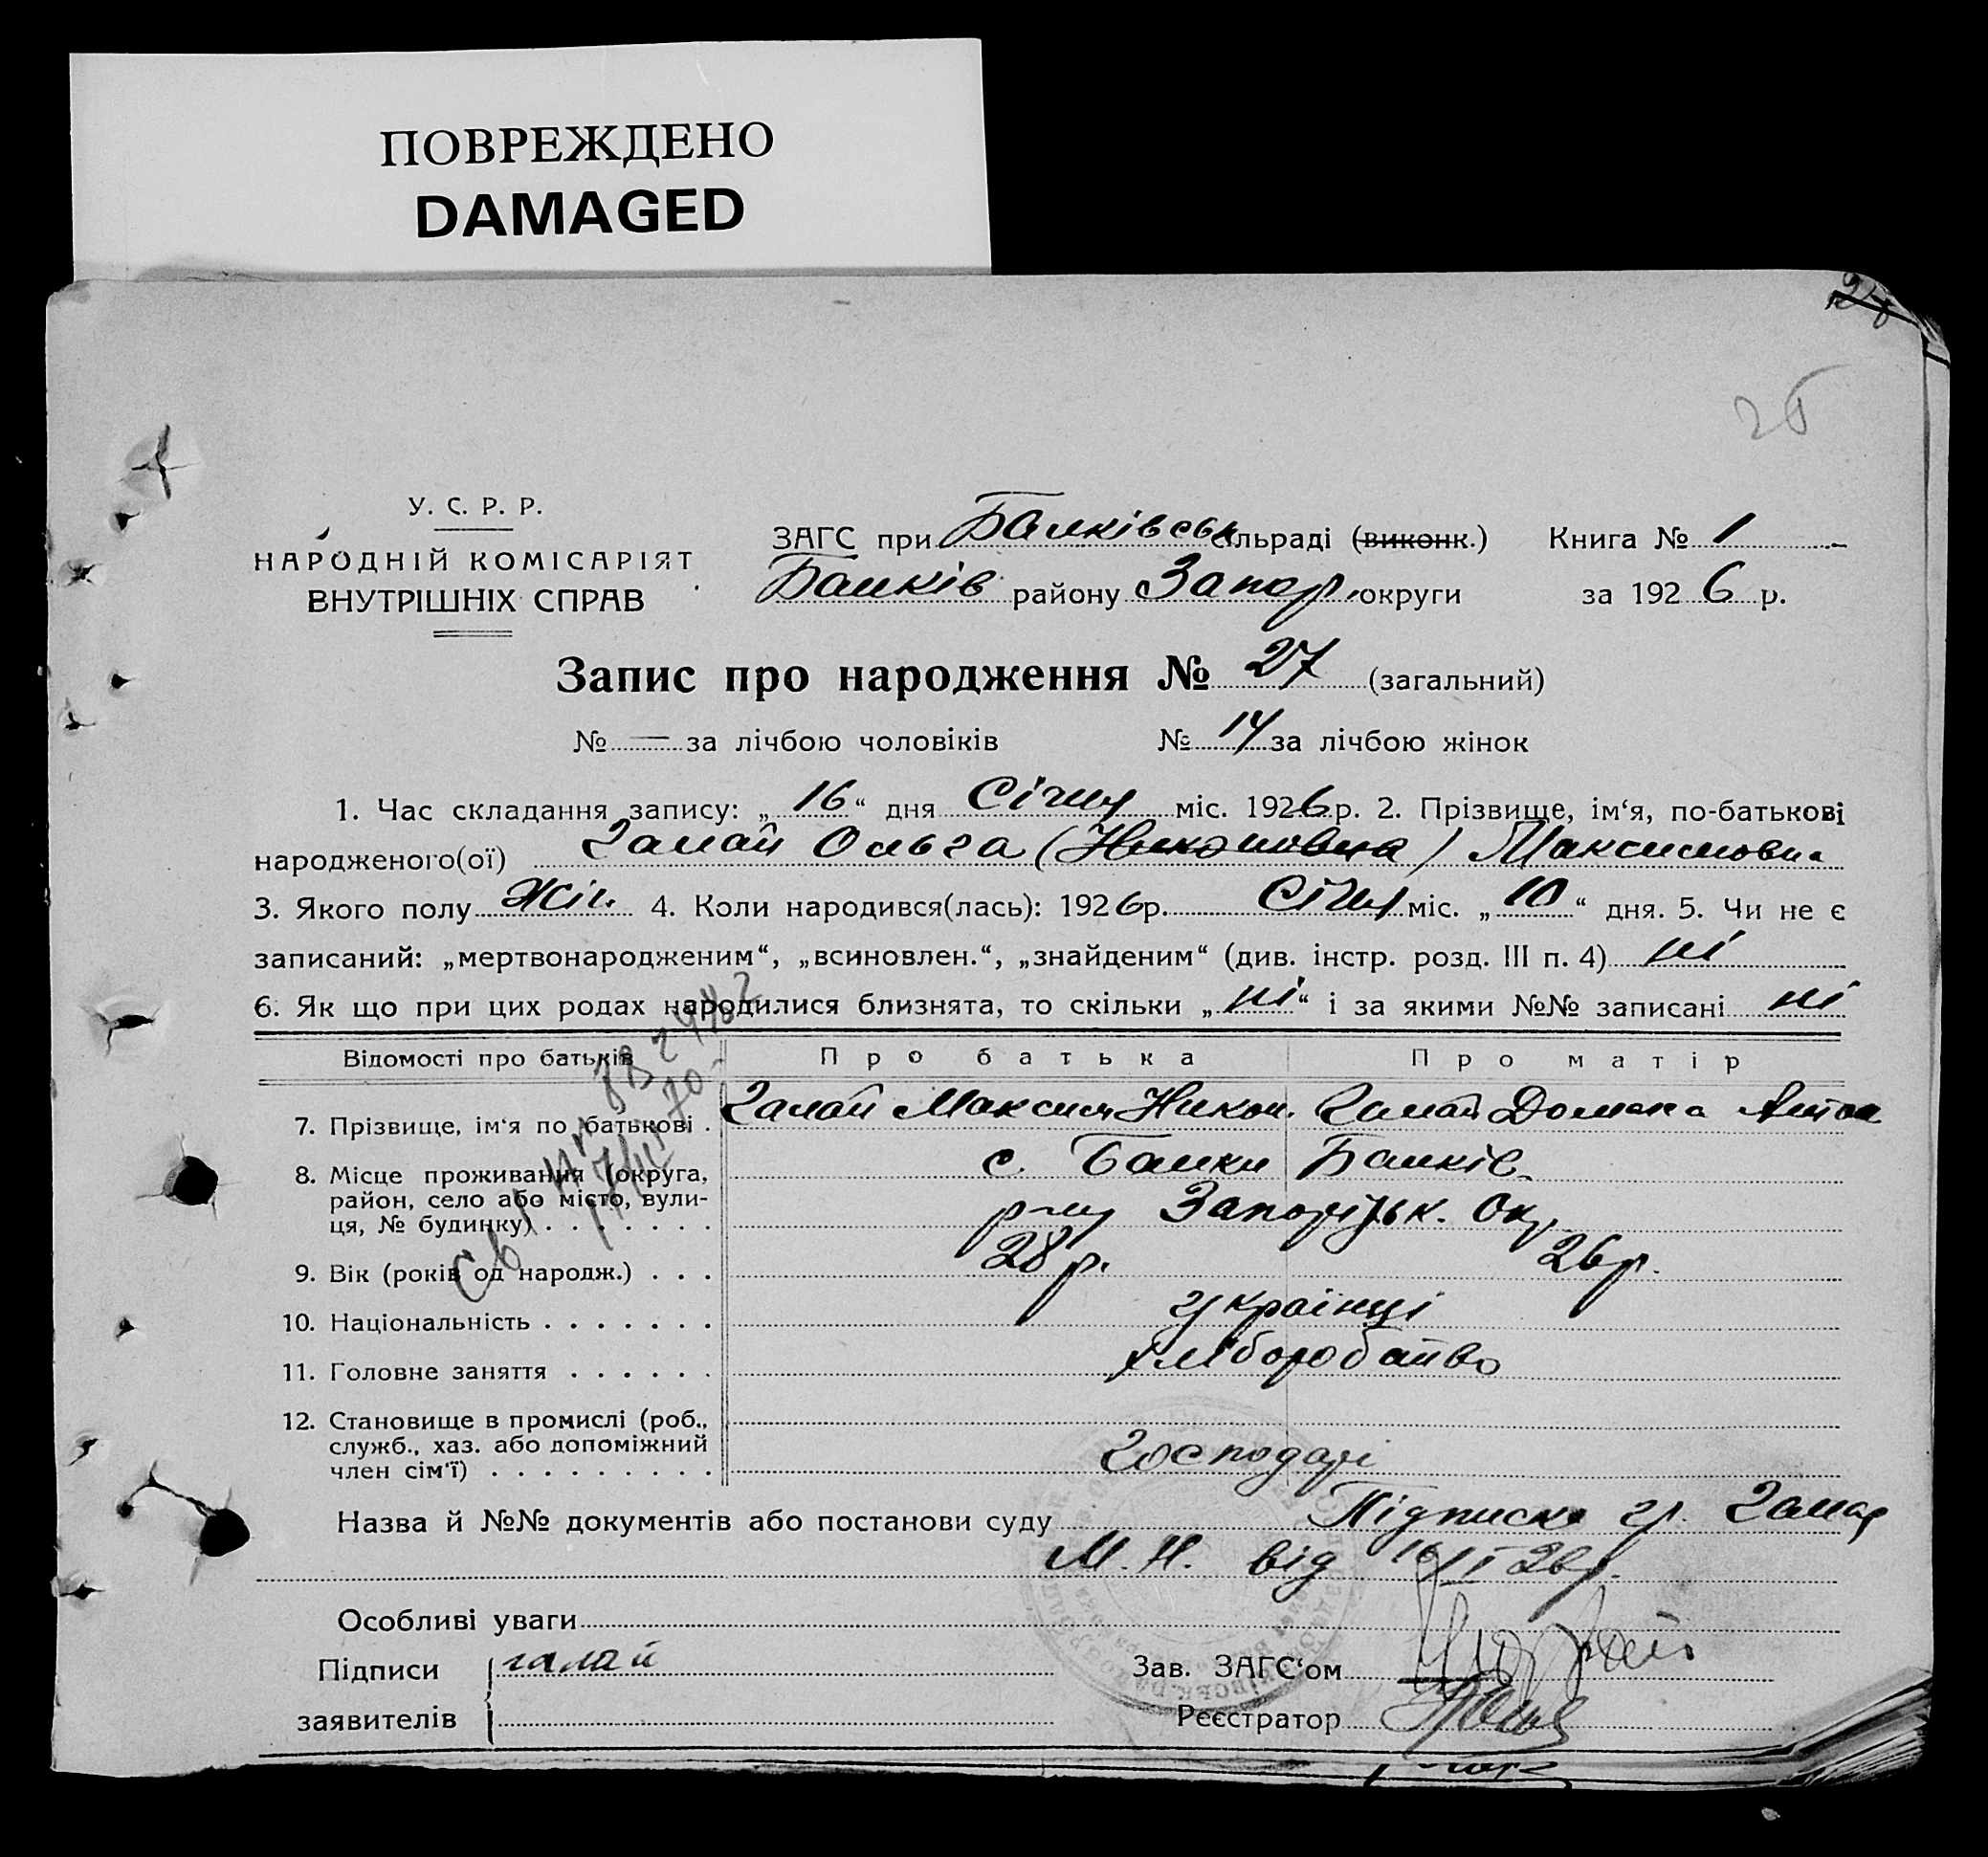 ПОВРЕЖДЕНО
DAMAGED
24
25
У. С. Р. Р.
НАРОДНІЙ КОМІСАРІЯТ
ВНУТРІШНІХ СПРАВ
ЗАГС при Балківськ сільраді (виконк.) Книга № 1
Балків району Запор. округи за 1926 р.
Запис про народження № 27 (загальний)
№ — за лічбою чоловіків № 14 за лічбою жінок
1. Час складання запису: „16“ дня Січня міс. 1926 р. 2. Прізвище, ім‘я, по-батькові
народженого(ої) Галай Ольга (Никоновна) Максимовна
3. Якого полу Жін. 4. Коли народився(лась): 1926 р. Січня міс. „10“ дня. 5. Чи не є
записаний: „мертвонародженим“, „всиновлен.“, „знайденим“ (див. інстр. розд. III п. 4) ні
6. Як що при цих родах народилися близнята, то скільки „ні“ і за якими №№ записані ні
Відомості про батьків Про батька Про матір
7. Прізвище, ім‘я по батькові . Галай Максим Никон. Галай Домаха Антон
8. Місце проживання (округа, с. Балки Балків.
район, село або місто, вули-
ця, № будинку) . . . . . . . р-ну Запорізьк. Окр.
9. Вік (років од народж.) . . . 28 р. 26 р.
10. Національність . . . . . . . українці
11. Головне заняття . . . . . . хліборобство
12. Становище в промислі (роб.,
служб., хаз. або допоміжний
член сім‘ї) . . . . . . . . . Господарі
Назва й №№ документів або постанови суду Підписка гр. Галая
М. Н. від 16/I 26 р.
Особливі уваги
Підписи галай Зав. ЗАГС‘ом
заявителів Реєстратор